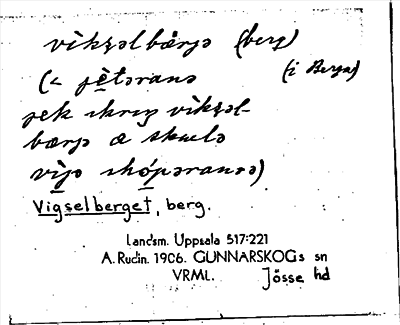 vìksəlbærjə (berg)
(< pètərans (i Berga)
jek skreŋ vìksəl-
bærjə æ skulə
vìjə
Vigselberget, berg.
Landsm. Uppsala 517:221
A. Rudin. 1906. GUNNARSKOGs sn
VRML. Jösse hd